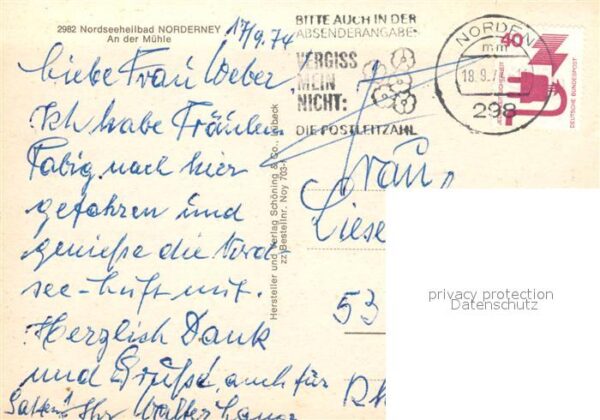 2982 Nordseeheilbad NORDERNEY
An der Mühle
17/9.74
BITTE AUCH IN DER
ABSENDERANGABE:
VERGISS
MEIN
NICHT:
DIE POSTLEITZAHL
NORDEN
mm
18.9.7
298
40
DEUTSCHE BUNDESPOST
Liebe Frau Weber,
Ich habe Fräulein
Fabig nach hier
gefahren und
genieße die Nord
see-Luft mit.
Herzlich Dank
und Grüße, auch für
Ihr Walter
Hersteller und Verlag Schöning & Co., Lübeck
Bestellnr. Noy 703
Frau
Liese
53
Rh
privacy protection
Datenschutz